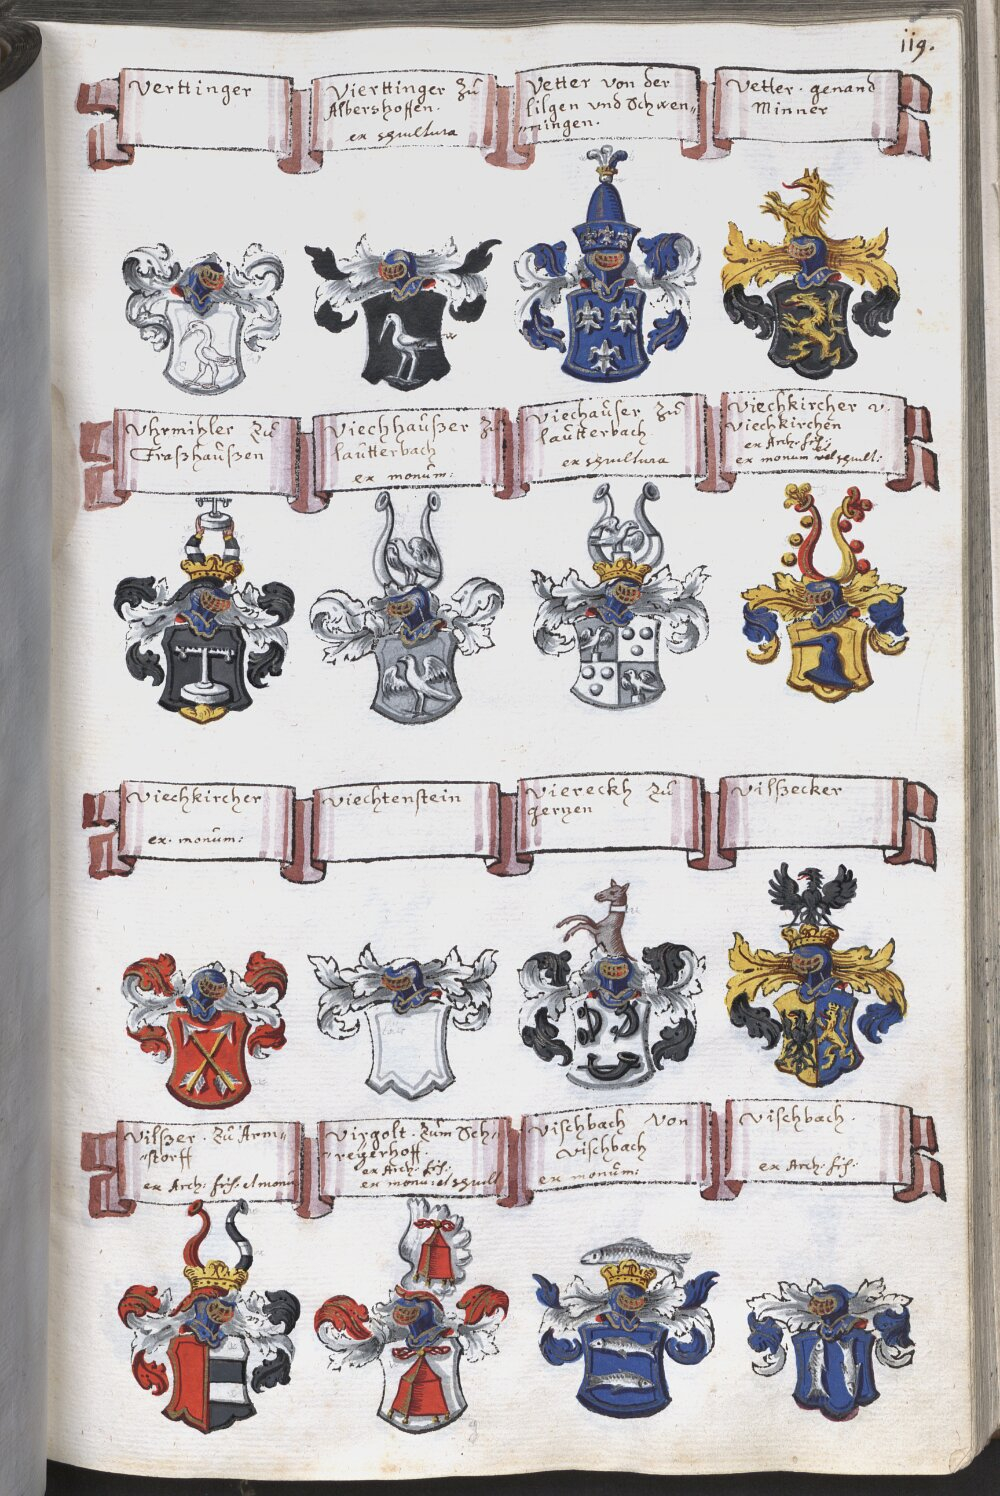 119.
Verttinger
Vierttinger Zu
Albershoffen.
ex sepultura
Vetter von der
lilgen und Schwen„
„ningen.
Vetter. genand
Minner
Vhrmihler Zu
Graßhaußen
Viechhaußer Zu
lautterbach
ex monum:
Viechauser Zu
lautterbach
ex sepultura
Viechkircher v.
Viechkirchen
ex Arch: fris:
ex monum vel sepult:
Viechkircher
ex. monum:
Viechtenstein
Viereckh Zu
gerzen
Vilßecker
Vilßer. Zu Arm„
„storff
ex Arch: fris. et monum
Virgolt. Zum Sch„
„reyerhoff.
ex Arch: fris:
ex monu: et sepult
Vischbach Von
Vischbach
ex monum:
Vischbach.
ex Arch: fris: